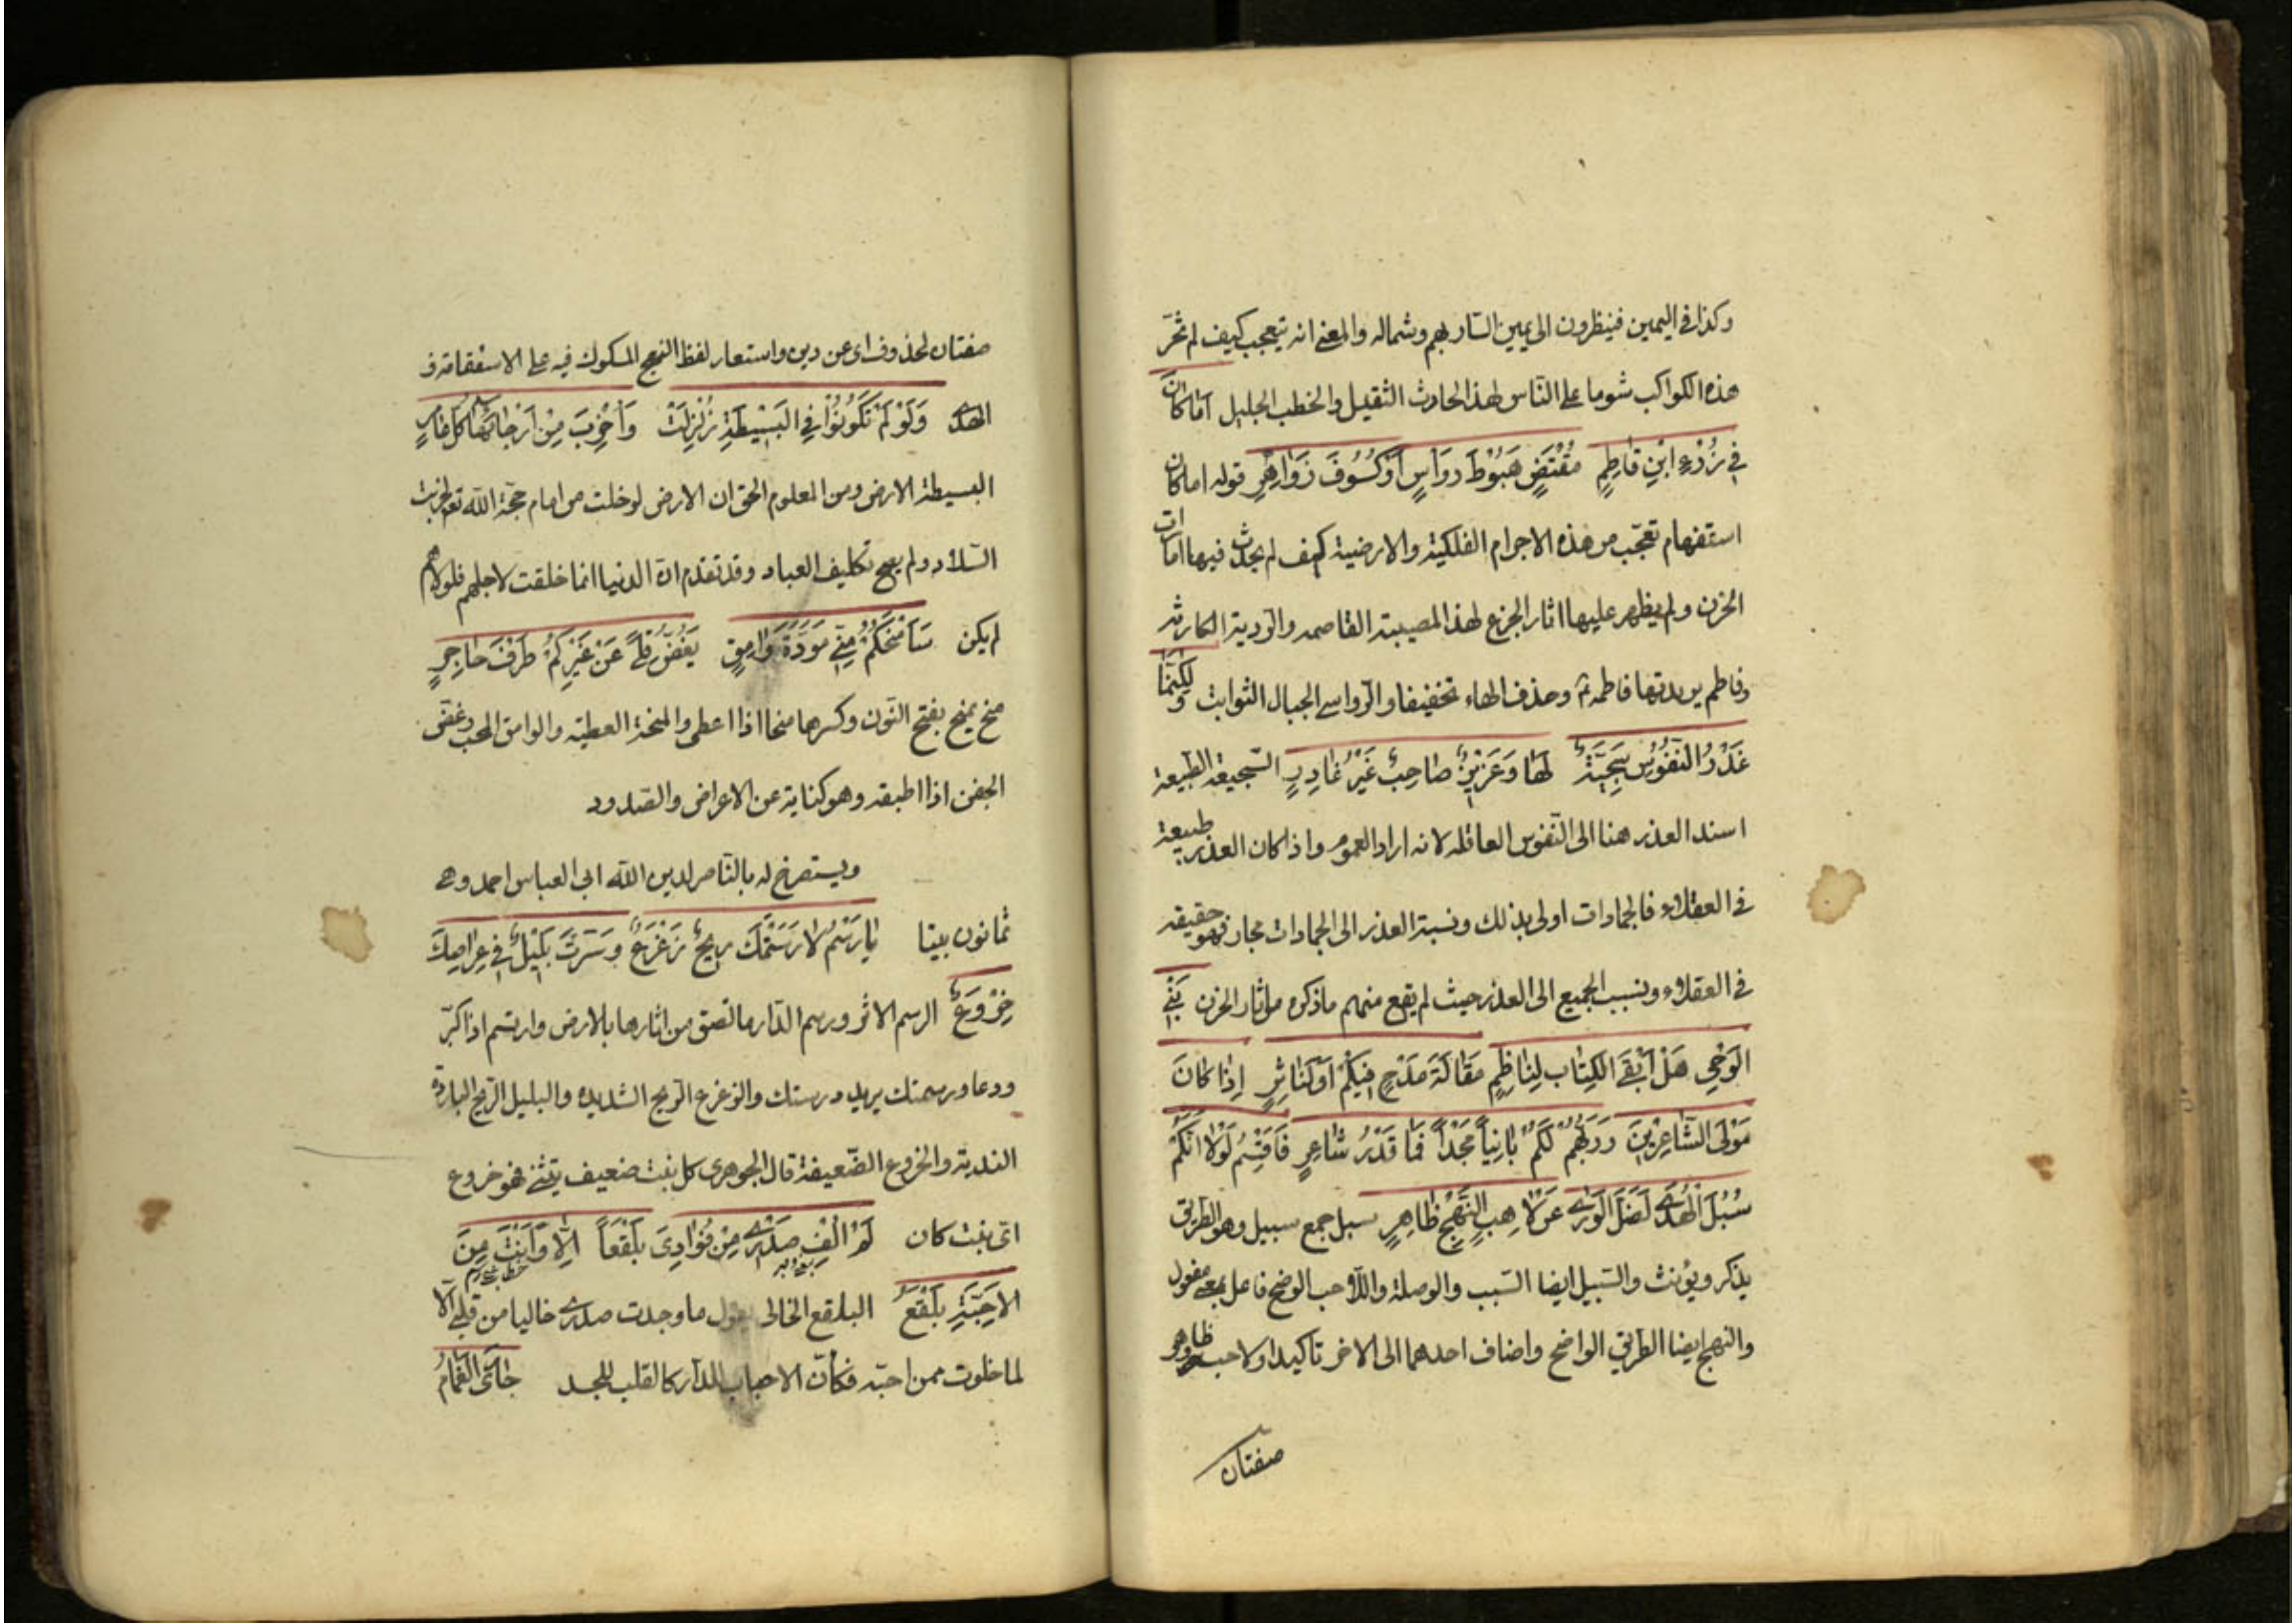 وكذا في اليمين فينظرون الى يمين السار بهم وشماله والمعنى انه يتعجب كيف لم تخر
هذه الكواكب شوما على الناس لهذا الحادث الثقيل والخطب الجليل اَمَا كَانَ
في رُزْءِ ابْنِ فَاطِمٍ مُقْتَضٍ هُبُوْطَ رَوَاسٍ اَوْ كُسُوْفَ زَوَاهِرٍ قوله اما كان
استفهام تعجّب من هذه الاجرام الفلكية والارضية كيف لم يحدث فيها امارات
الحزن ولم يظهر عليها اثار الجزع لهذا المصيبة القاصمه والرديۃ الكارثه
وفاطم يريد بها فاطمه وحذف الهاء تخفيفا والرواسي الجبال الثوابت وَلكِنَّمَا
غَدْرُ النُّفُوْسِ سَجِيَّةٌ لَهَا وَعَزِيْزٌ صَاحِبٌ غَيْرُ غَادِرٍ السجية الطبيعة
اسند الغدر هنا الى النفوس العاقله لانه اراد العموم واذا كان الغدر طبيعة
في العقلاء فالجمادات اولى بذلك ونسبة الغدر الى الجمادات مجاز فهو حقيقه
في العقلاء وبنسب الجميع الى الغدر حيث لم يقع منهم ماذكره من اثار الحزن بَنِي
الوَحْيِ هَلْ اَبْقَى الكِتَاب لِنَاظِمٍ مَقَالَةَ مَدْحٍ فِيْكُمْ اَوْ لِنَاثِرٍ اِذَا كَانَ
مَوْلَى الشَّاعِرِيْنَ وَرَبُّهُمْ لَكُمْ بَانِياً مَجْداً فَمَا قَدْرُ شَاعِرٍ فَاُقْسِمُ لَوْلَا اَنَّكُمْ
سُبُلَ الْهُدَى لَضَلَّ الوَرَى عَنْ لَاحِبِ النَّهْجِ ظَاهِرٍ سبل جمع سبيل وهو الطريق
يذكر ويؤنث والسبيل ايضا السبب والوصلة واللاحب الوضح فاعل بمعنى مفعول
والنهج ايضا الطريق الواضح واضاف احدهما الى الاخر تاكيدا ولاحب وظاهر
صفتان
صفتان لمحذوف اي عن دين واستعار لفظ النهج المسكوك فيه على الاستقامة في
الهدى وَلَوْ لَمْ تَكُوْنُوْا فِي البَسِيْطَةِ زُلْزِلَتْ وَاُخْرِبَ مِنْ اَرْجَائِهَا كُلُّ عَامِرٍ
البسيطة الارض ومن المعلوم الحق ان الارض لو خلت من امام حجة الله تع لخربت
البلاد ولم يصح تكليف العباد وقد تقدم ان الدنيا انما خلقت لاجلهم فلولاهم
لم يكن سَاَمْنَحُكُمْ مِنّي مَوَدَّةَ وَامِقٍ يَغُضُّ قِلًى عَنْ غَيْرِكُمْ طَرْفَ حَاجِرٍ
منح يمنح بفتح النون وكسرها منحا اذا اعطى والمنحة العطية والوامق المحب وغض
الجفن اذا اطبقه وهو كناية عن الاعراض والصدود
ويستصرخ له بالناصر لدين الله ابي العباس احمد وهي
ثمانون بيتا يَا رَسْمُ لَا رَسَمَتْكَ رِيحٌ زَعْزَعٌ وَسَرَتْ بَلِيْلٌ فِي عِرَاصِكَ
خِرْوَعٌ الرسم الاثر ورسم الدار مالصق من اثارها بالارض وارتسم اذا كبّر
ودعا ورسمتك يريد درستك والزعزع الريح الشديده والبليل الريح البارده
النديۃ والخروع الضعيفة قال الجوهرى كل نبت ضعيف يتثنى فهو خروع
اى نبت كان لَمْ اُلْفِ صَدْرِي مِنْ فُؤَادِيَ بَلْقَعاً اِلَّا وَاَنْتَ مِنَ
الاَحِبَّةِ بَلْقَعُ البلقع الخالى يقول ماوجدت صدرى خاليا من قلبي الا
لما خلوت ممن احبه فكأن الاحباب للدار كالقلب للجسد جَارَى الغَمَامُ